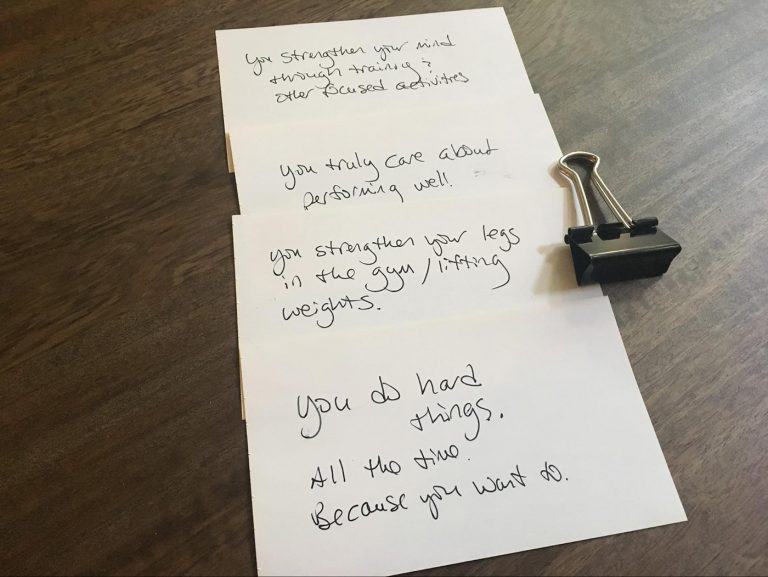 You strengthen your mind
through training &
other focused activities
you truly care about
performing well!
you strengthen your legs
in the gym / lifting
weights.
you do hard
things.
All the time.
Because you want to.